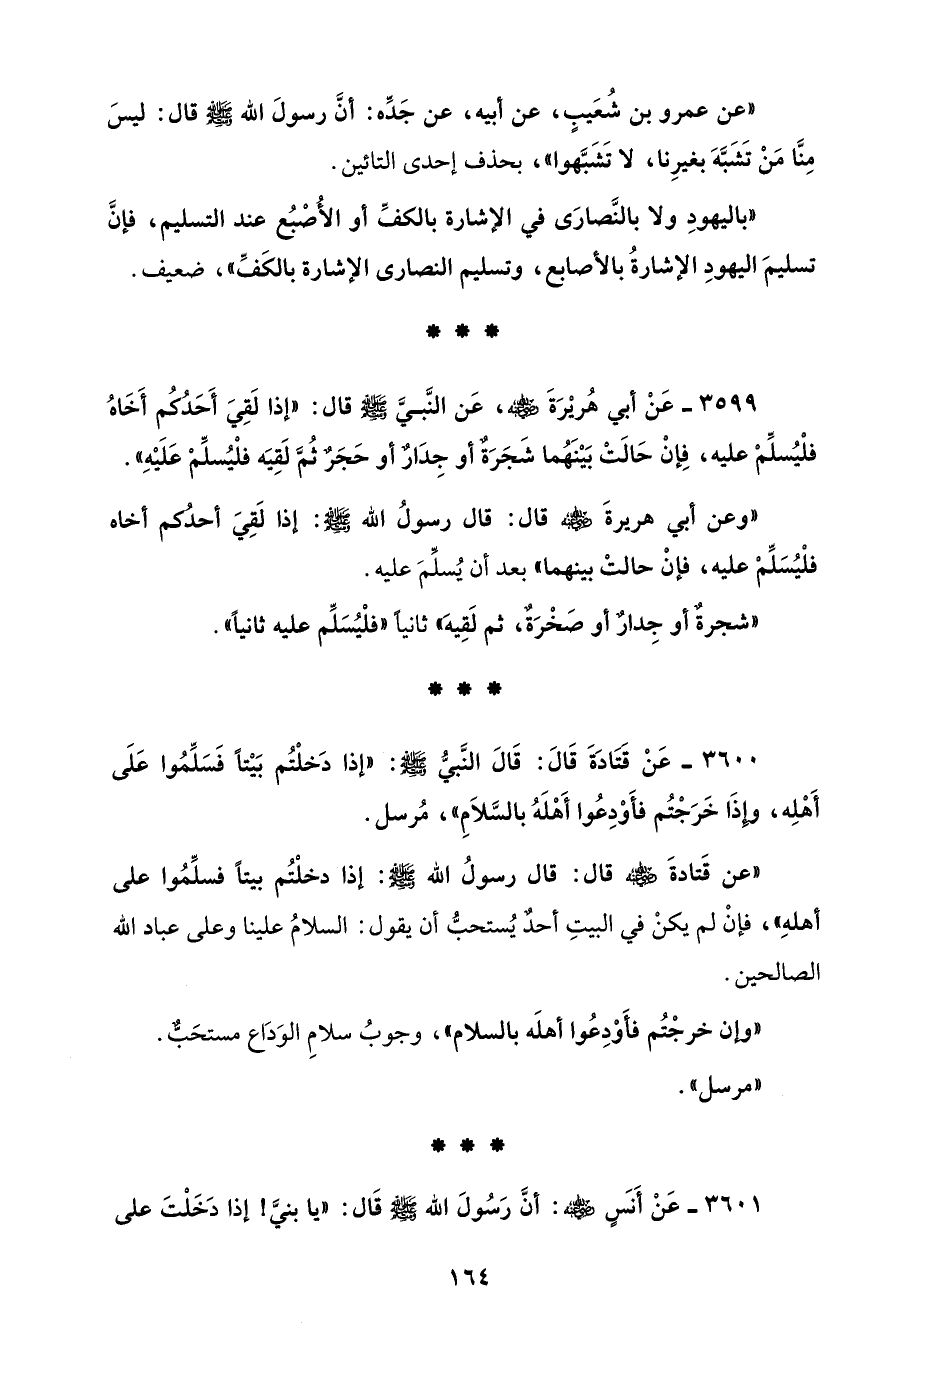 «عن عمرو بن شُعَيبٍ، عن أبيه، عن جَدِّه: أنَّ رسولَ الله ﷺ قال: ليسَ
مِنَّا مَنْ تَشَبَّهَ بغيرِنا، لا تَشَبَّهوا»، بحذف إحدى التائين.
«باليهودِ ولا بالنَّصارَى في الإشارة بالكفِّ أو الأُصْبُع عند التسليم، فإنَّ
تسليمَ اليهودِ الإشارةُ بالأصابع، وتسليم النصارى الإشارة بالكَفِّ»، ضعيف.
* * *
٣٥٩٩ ـ عَنْ أبي هُريْرَةَ ﵁، عَن النَّبـيَّ ﷺ قال: «إذا لَقِيَ أَحَدُكُم أَخَاهُ
فلْيُسلِّمْ عليه، فِإنْ حَالَتْ بَيْنَهُما شَجَرَةٌ أو جِدَارٌ أو حَجَرٌ ثُمَّ لَقِيَه فليُسلِّمْ عَلَيْهِ».
«وعن أبي هريرةَ ﵁ قال: قال رسولُ الله ﷺ: إذا لَقِيَ أحدُكم أخاه
فلْيُسَلِّمْ عليه، فإنْ حالتْ بينهما» بعد أن يُسلِّمَ عليه.
«شجرةٌ أو جِدارٌ أو صَخْرَةٌ، ثم لَقِيهَ» ثانياً «فلْيُسَلِّم عليه ثانياً».
* * *
٣٦٠٠ ـ عَنْ قَتَادَةَ قَالَ: قَالَ النَّبيُّ ﷺ: «إذا دَخلْتُم بَيْتاً فَسَلِّمُوا عَلَى
أَهْلِه، وإِذَا خَرَجْتُم فأَوْدِعُوا أَهْلَهُ بالسَّلاَمِ»، مُرسل.
«عن قَتادةَ ﵁ قال: قال رسولُ الله ﷺ: إذا دخلْتُم بيتاً فسلِّمُوا على
أهلهِ»، فإنْ لم يكنْ في البيتِ أحدٌ يُستحبُّ أن يقول: السلامُ علينا وعلى عباد الله
الصالحين.
«وإن خرجْتُم فأَوْدِعُوا أهلَه بالسلام»، وجوبُ سلامِ الوَدَاع مستحَبٌّ.
«مرسل».
* * *
٣٦٠١ ـ عَنْ أَنَسٍ ﵁: أنَّ رَسُولَ الله ﷺ قَال: «يا بنيَّ! إذا دَخَلْتَ على
١٦٤